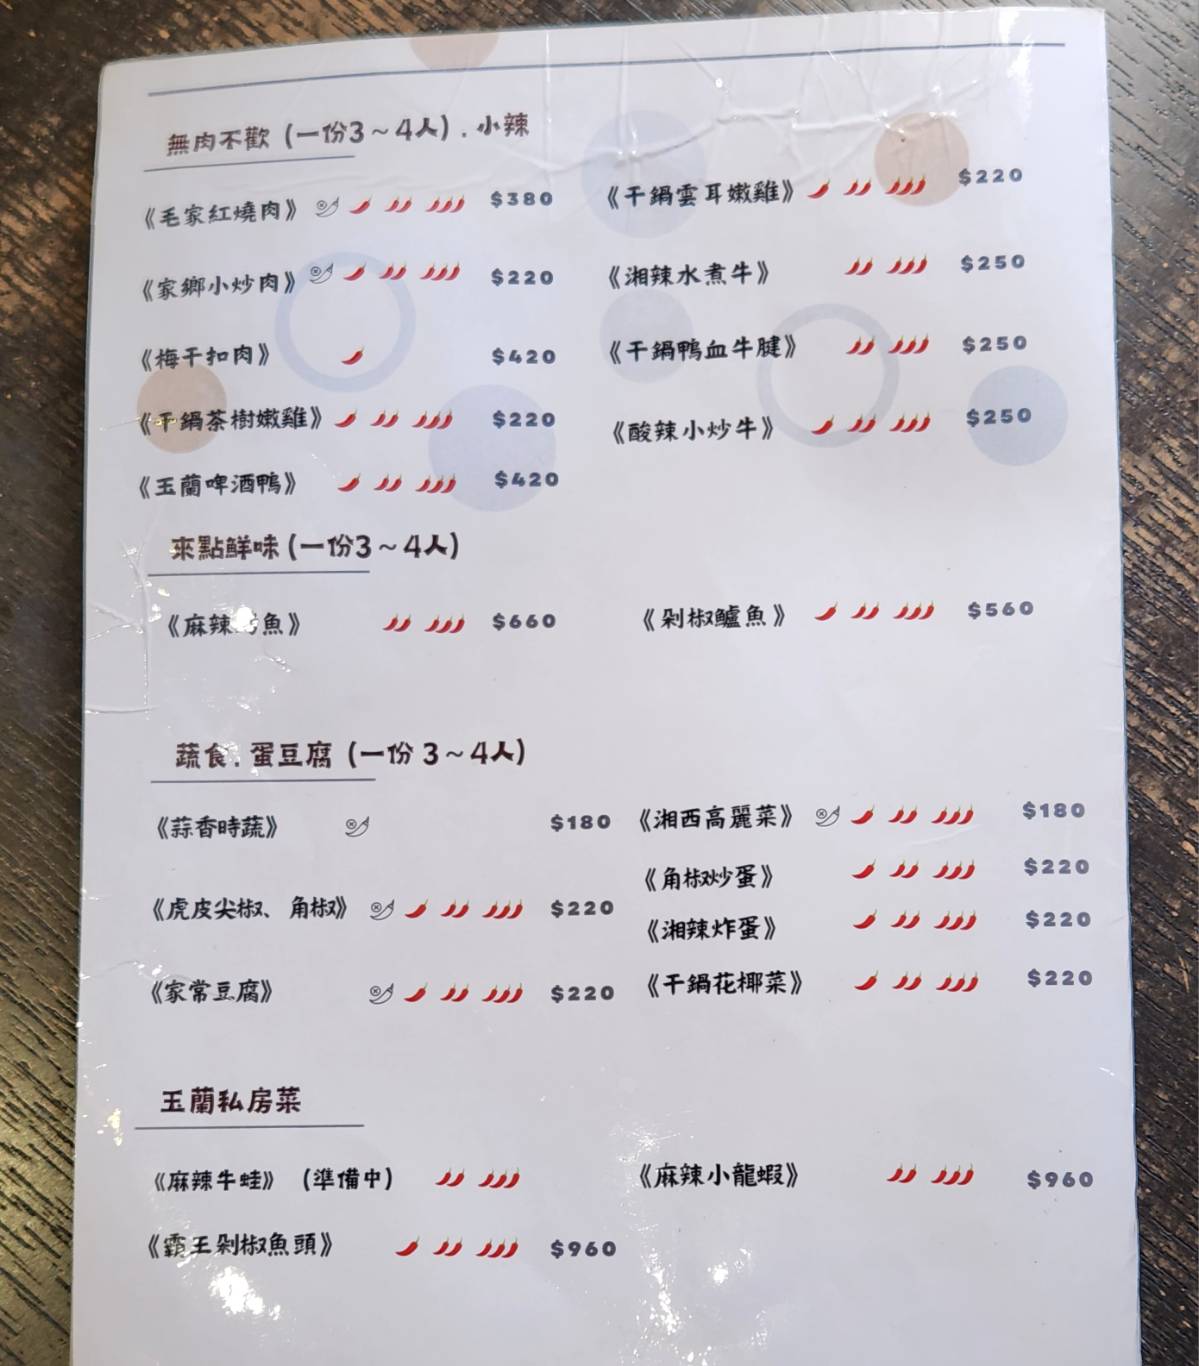 無肉不歡 (一份3~4人) . 小辣
《毛家紅燒肉》 $380
《干鍋雲耳嫩雞》 $220
《家鄉小炒肉》 $220
《湘辣水煮牛》 $250
《梅干扣肉》 $420
《干鍋鴨血牛腱》 $250
《干鍋茶樹嫩雞》 $220
《酸辣小炒牛》 $250
《玉蘭啤酒鴨》 $420
來點鮮味 (一份3~4人)
《麻辣 魚》 $660
《剁椒鱸魚》 $560
蔬食. 蛋豆腐 (一份 3~4人)
《蒜香時蔬》 $180
《湘西高麗菜》 $180
《角椒炒蛋》 $220
《虎皮尖椒、角椒》 $220
《湘辣炸蛋》 $220
《家常豆腐》 $220
《干鍋花椰菜》 $220
玉蘭私房菜
《麻辣牛蛙》 (準備中)
《麻辣小龍蝦》 $960
《霸王剁椒魚頭》 $960